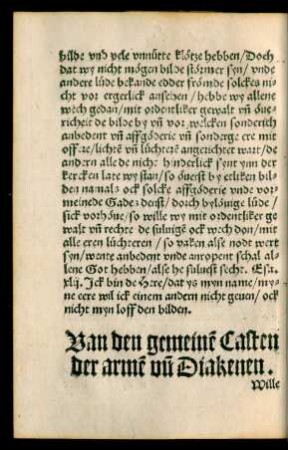 bilde vnd vele vnnütte klötze hebben / Doch
dat wy nicht mögen bilde störmer syn / vnde
andere lüde bekande edder frömde solckes ni-
cht vor ergerlick ansehen / hebbe wy allene
wech gedan / mit ordentliker gewalt vñ öue-
richeit de bilde by vñ vor welcken sonderlich
anbedent vñ affgöderie vñ sonderge ere mit
offere / lichtē vñ lüchterē angerichtet wart / de
andern alle de nicht hinderlick synt ynn der
kercken late wy stan / so öuerst by etliken bil-
den namals ock solcke affgöderie vnde vor-
meinede Gades denst / dorch bylönige lüde /
sick vorhöue / so wille wy mit ordentliker ge-
walt vñ rechte de sülnige ock wech don / mit
alle eren lüchteren / so vaken alse nodt wert
syn / wente anbedent vnde anropent schal al-
lene Got hebben / alse he suluest secht. Esa.
xlij. Ick bin de Here / dat ys myn name / my-
ne eere wil ick einem andern nicht geuen / ock
nicht myn loff den bilden.
Van den gemeinē Casten
der armē vñ Diakenen.
Wille